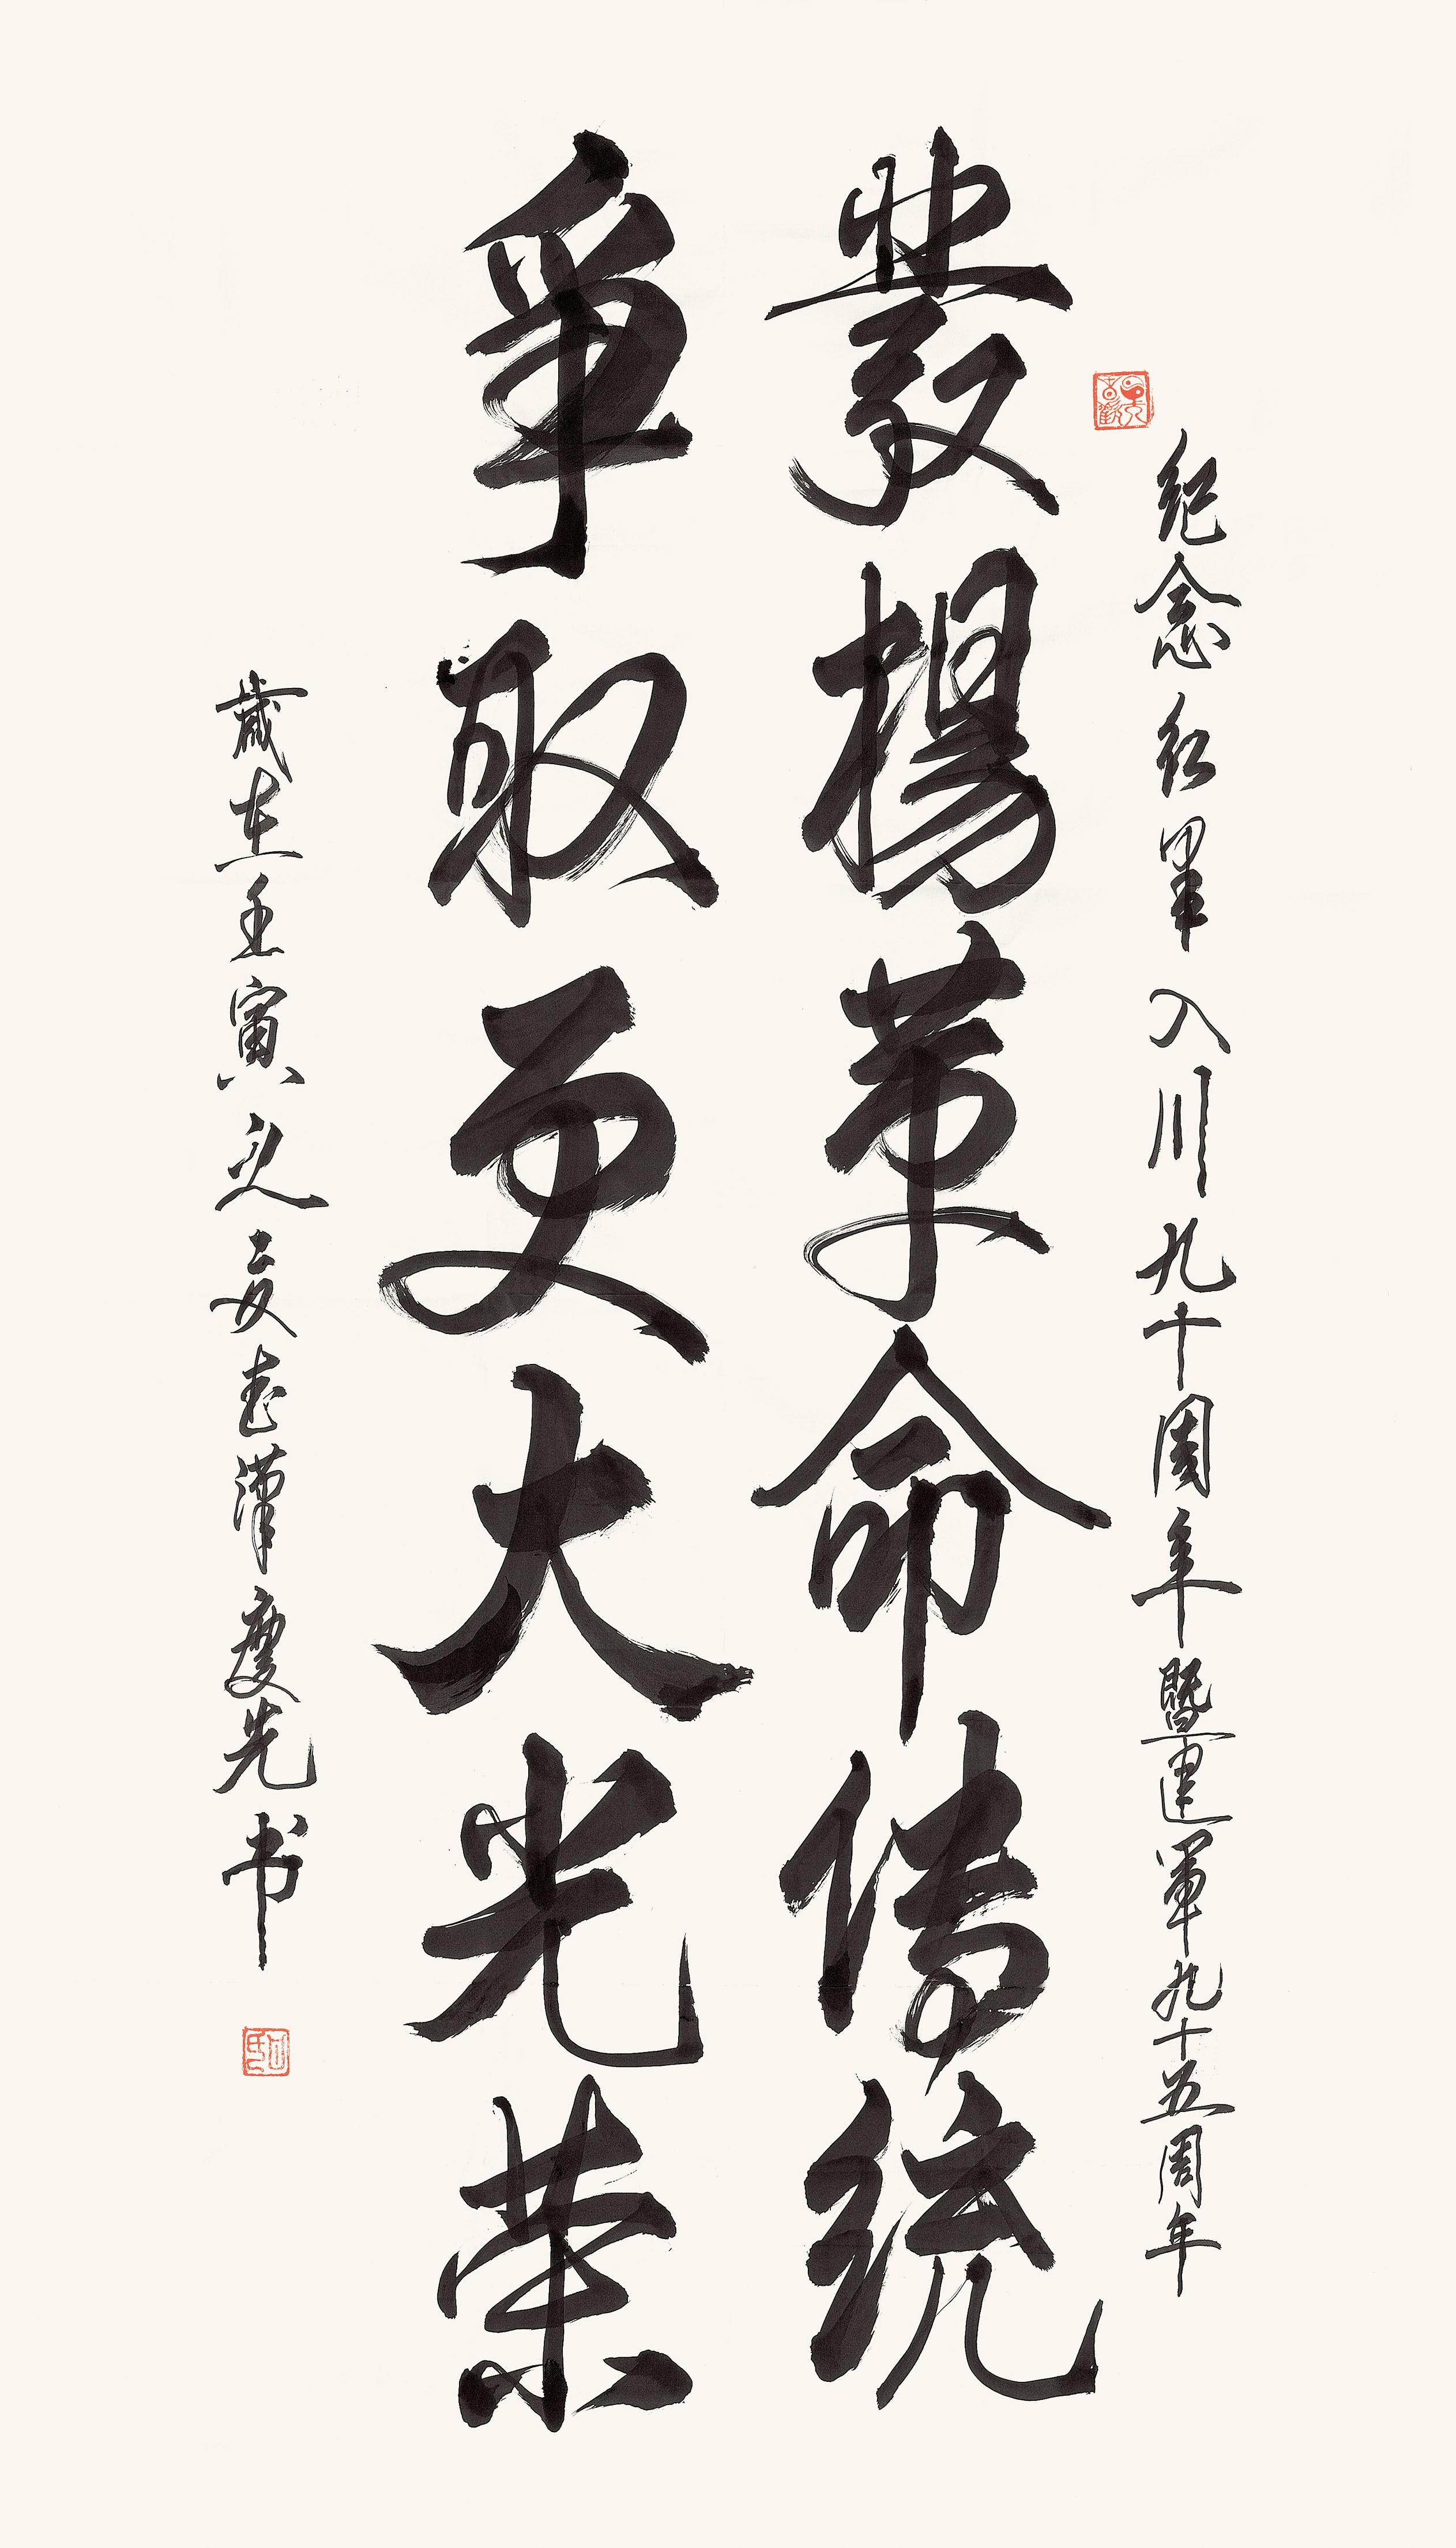 紀念紅軍入川九十周年暨建軍九十五周年
發揚革命傳統
爭取更大光荣
歲在壬寅夏漢慶先书